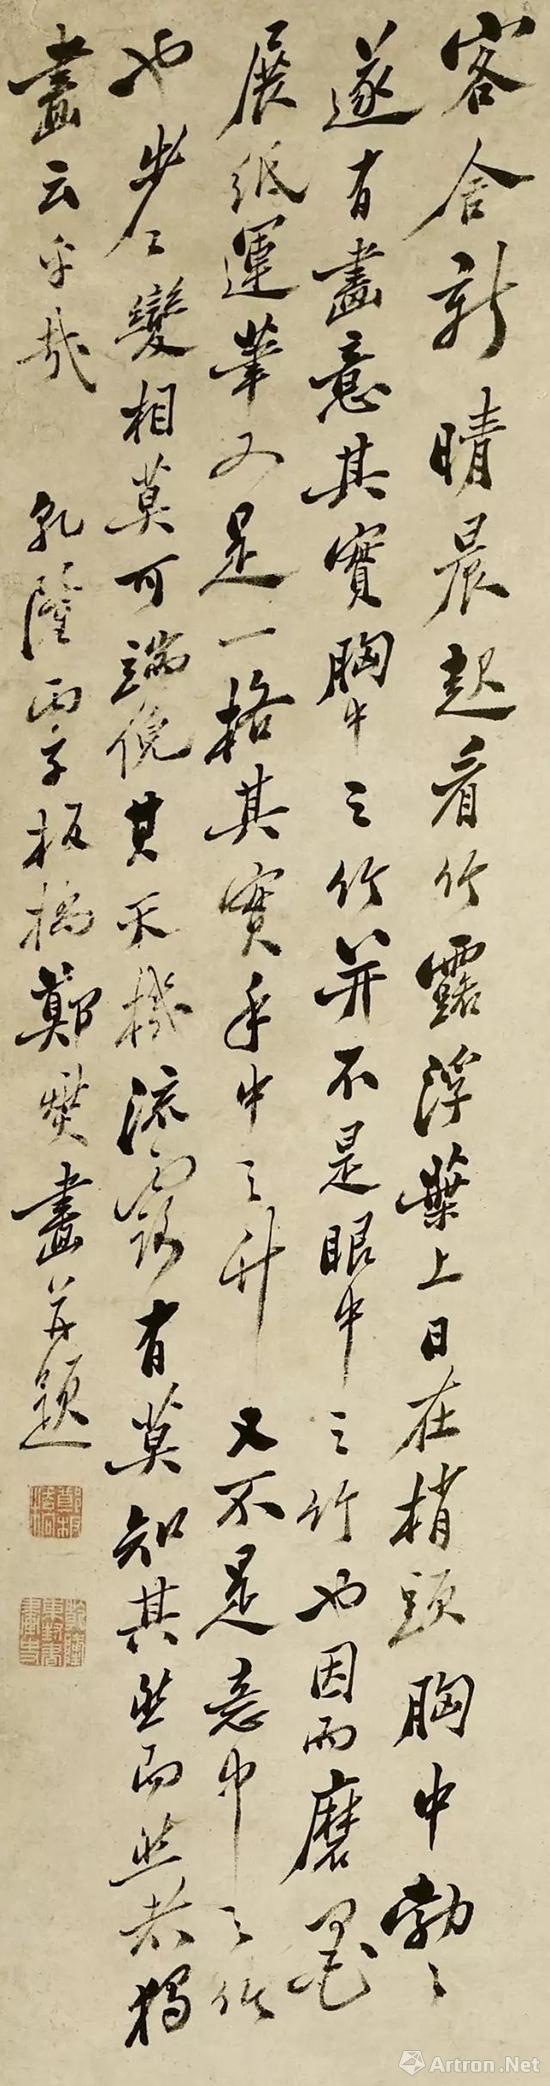 客舍新晴晨起看竹露浮葉上日在梢頭胸中勃〻
遂有畫意其實胸中之竹并不是眼中之竹也因而磨墨
展紙運筆又是一格其實手中之竹又不是意中之竹
也步〻變相莫可端倪其天機流露有莫知其然而然者獨
畫云乎哉 乾隆丙子板橋鄭燮畫并題
Artron.Net